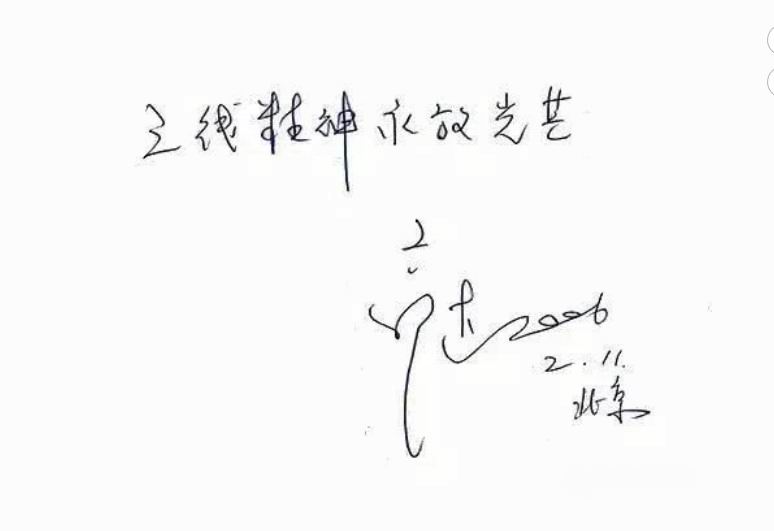 三线精神永放光芒
2006
2.11.
北京